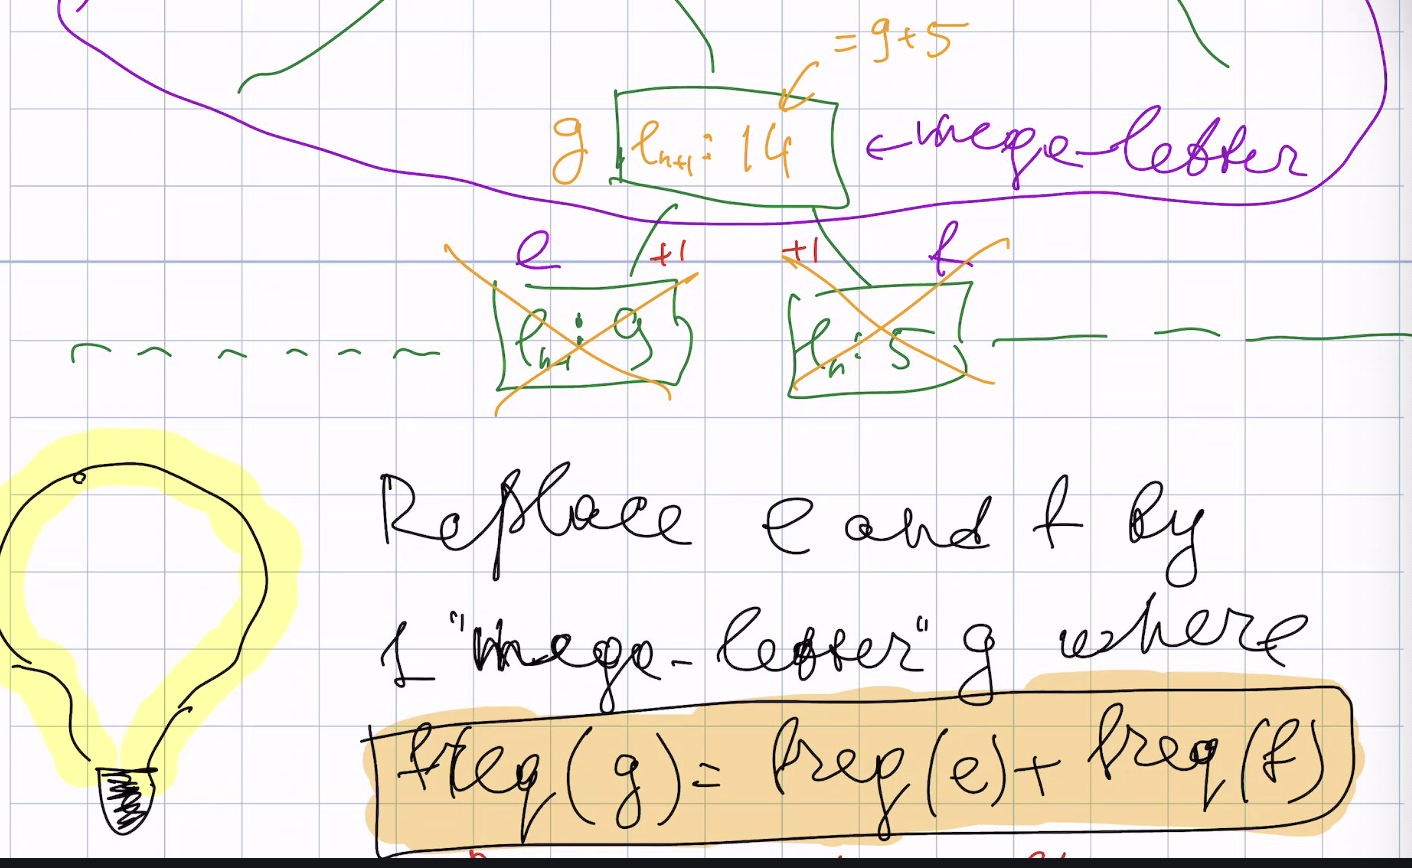 = 9+5
g lₙ₊₁: 14 ← mega-letter
e +1 +1 f
lₙ₋₁: 9 lₙ: 5
Replace e and f by
1 "mega-letter" g where
freq(g) = freq(e) + freq(f)